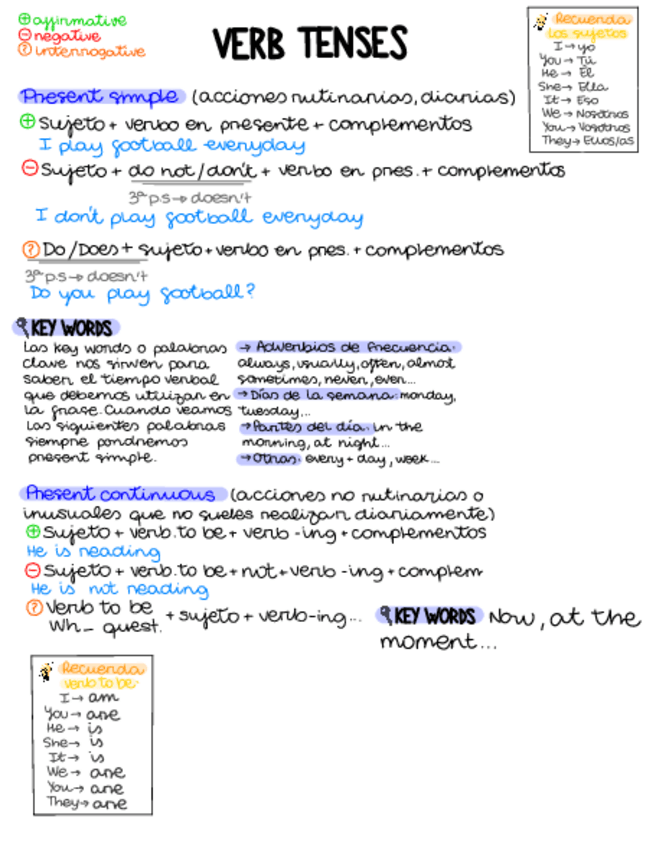 ⊕ affirmative
⊖ negative
? interrogative
VERB TENSES
Recuerda
los sujetos
I → yo
You → Tú
He → Él
She → Ella
It → Eso
We → Nosotros
You → Vosotros
They → Ellos/as
Present simple (acciones rutinarias, diarias)
⊕ Sujeto + verbo en presente + complementos
I play football everyday
⊖ Sujeto + do not / don't + verbo en pres. + complementos
3ª p.s → doesn't
I don't play football everyday
? Do / Does + sujeto + verbo en pres. + complementos
3ª p.s → doesn't
Do you play football?
KEY WORDS
Las key words o palabras
clave nos sirven para
saber el tiempo verbal
que debemos utilizar en
la frase. Cuando veamos
las siguientes palabras
siempre pondremos
present simple.
→ Adverbios de frecuencia:
always, usually, often, almost
sometimes, never, ever...
→ Días de la semana: monday,
tuesday,...
→ Partes del día: in the
morning, at night...
→ Otras: every + day, week...
Present continuous (acciones no rutinarias o
inusuales que no sueles realizar diariamente)
⊕ Sujeto + verb. to be + verb -ing + complementos
He is reading
⊖ Sujeto + verb. to be + not + verb -ing + complem
He is not reading
? Verb to be
Wh_ quest.
+ sujeto + verb-ing...
KEY WORDS Now, at the
moment...
Recuerda
verb to be
I → am
You → are
He → is
She → is
It → is
We → are
You → are
They → are